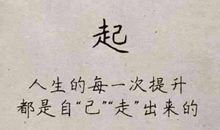 起
人生的每一次提升
都是自“己”“走”出来的